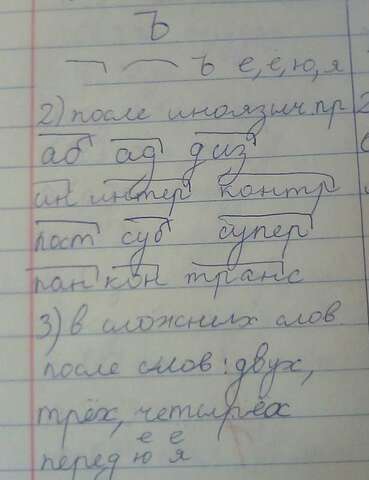 Ъ
Ъ е, ё, ю, я
2) после иноязыч. пр
аб ад диз
ин интер контр
пост суб супер
пан кон транс
3) в сложных слов.
после слов: двух,
трёх, четырёх
е ё
перед ю я